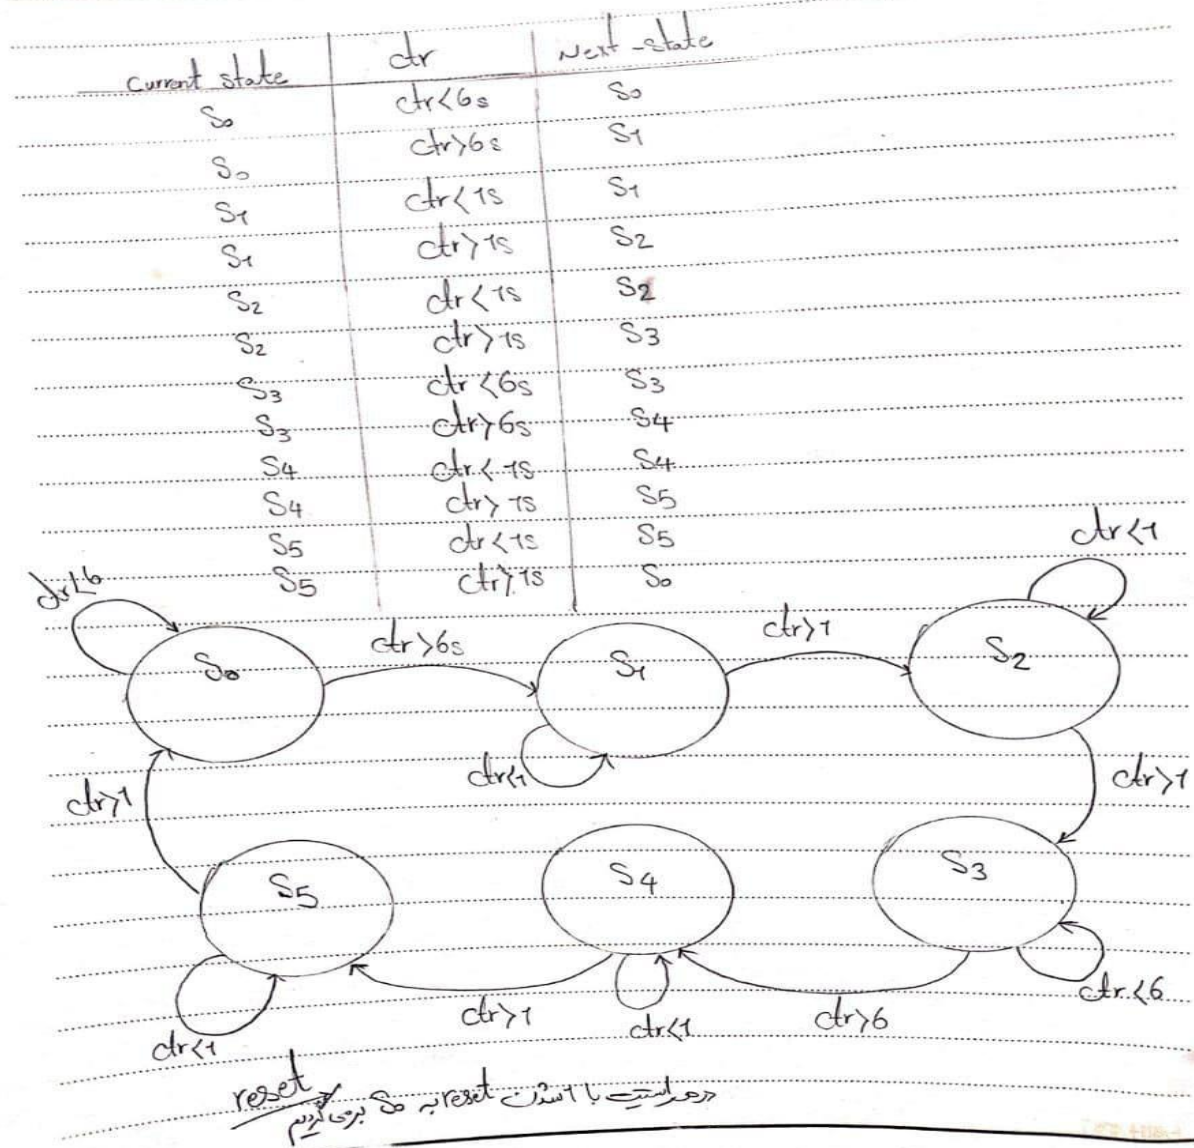 Current state ctr Next-state
S0 ctr<6s S0
S0 ctr>6s S1
S1 ctr<1s S1
S1 ctr>1s S2
S2 ctr<1s S2
S2 ctr>1s S3
S3 ctr<6s S3
S3 ctr>6s S4
S4 ctr<1s S4
S4 ctr>1s S5
S5 ctr<1s S5
S5 ctr>1s S0
ctr<6
ctr>6s
ctr>1
ctr<1
S0
S1
S2
ctr<1
ctr>1
ctr>1
S5
S4
S3
ctr<1
ctr>1
ctr<1
ctr>6
ctr<6
reset
در هر استیت با 1 شدن reset به S0 برمی گردیم